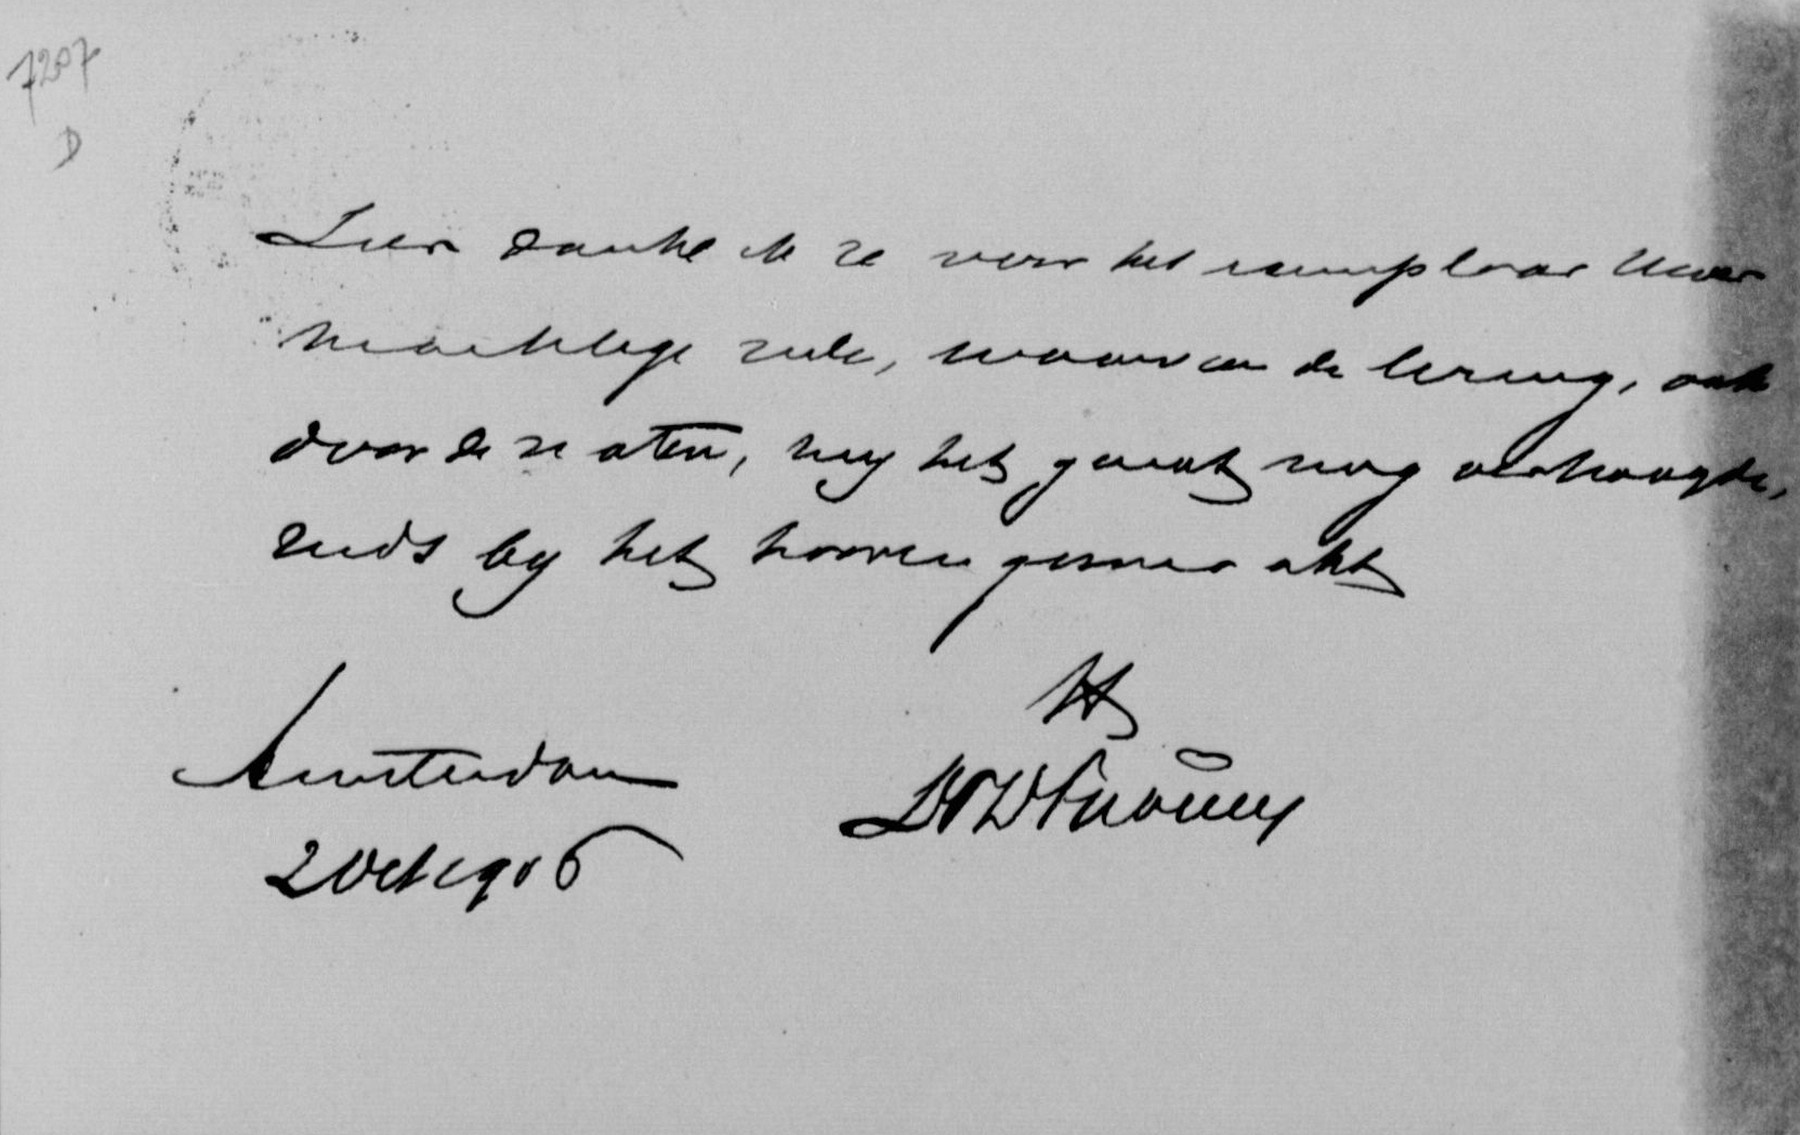 7207
D
Zeer danke ik Ue voor het exemplaar Uwer
machtige rede, waarvan de lezing, ook
door de noten, my het genot nog verhoogde,
reeds by het hooren gesmaakt
Amsterdam
2 Oct 1906